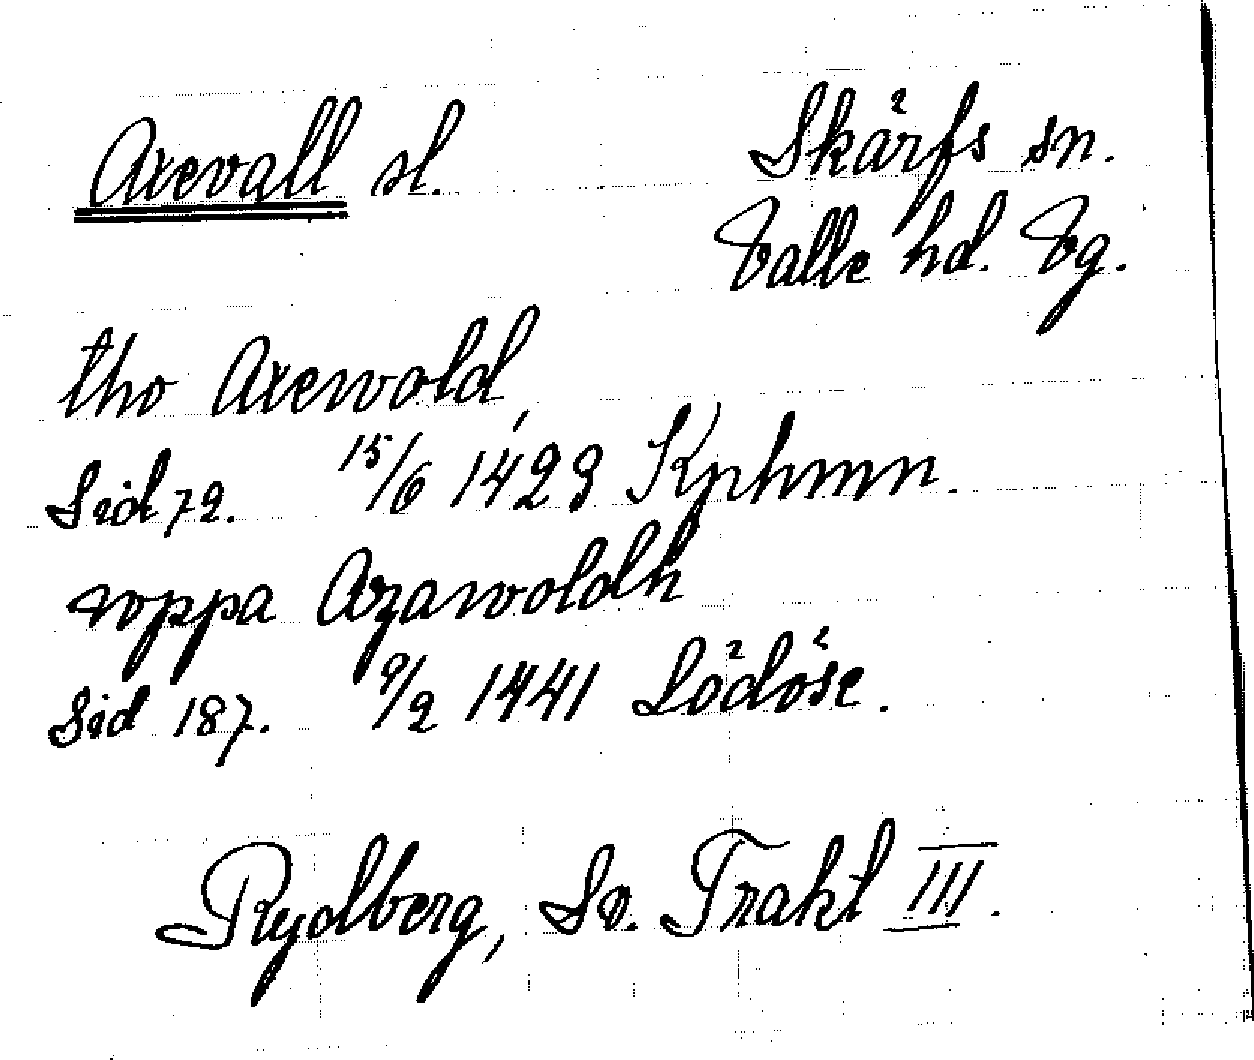 Axevall sl. Skärfs sn.
Valle hd. Vg.
tho Axewold,
Sid 72. 15/6 1423 Kphmn.
wppa Azawoldh
Sid 187. 9/2 1441 Lödöse.
Rydberg, Sv. Trakt III.